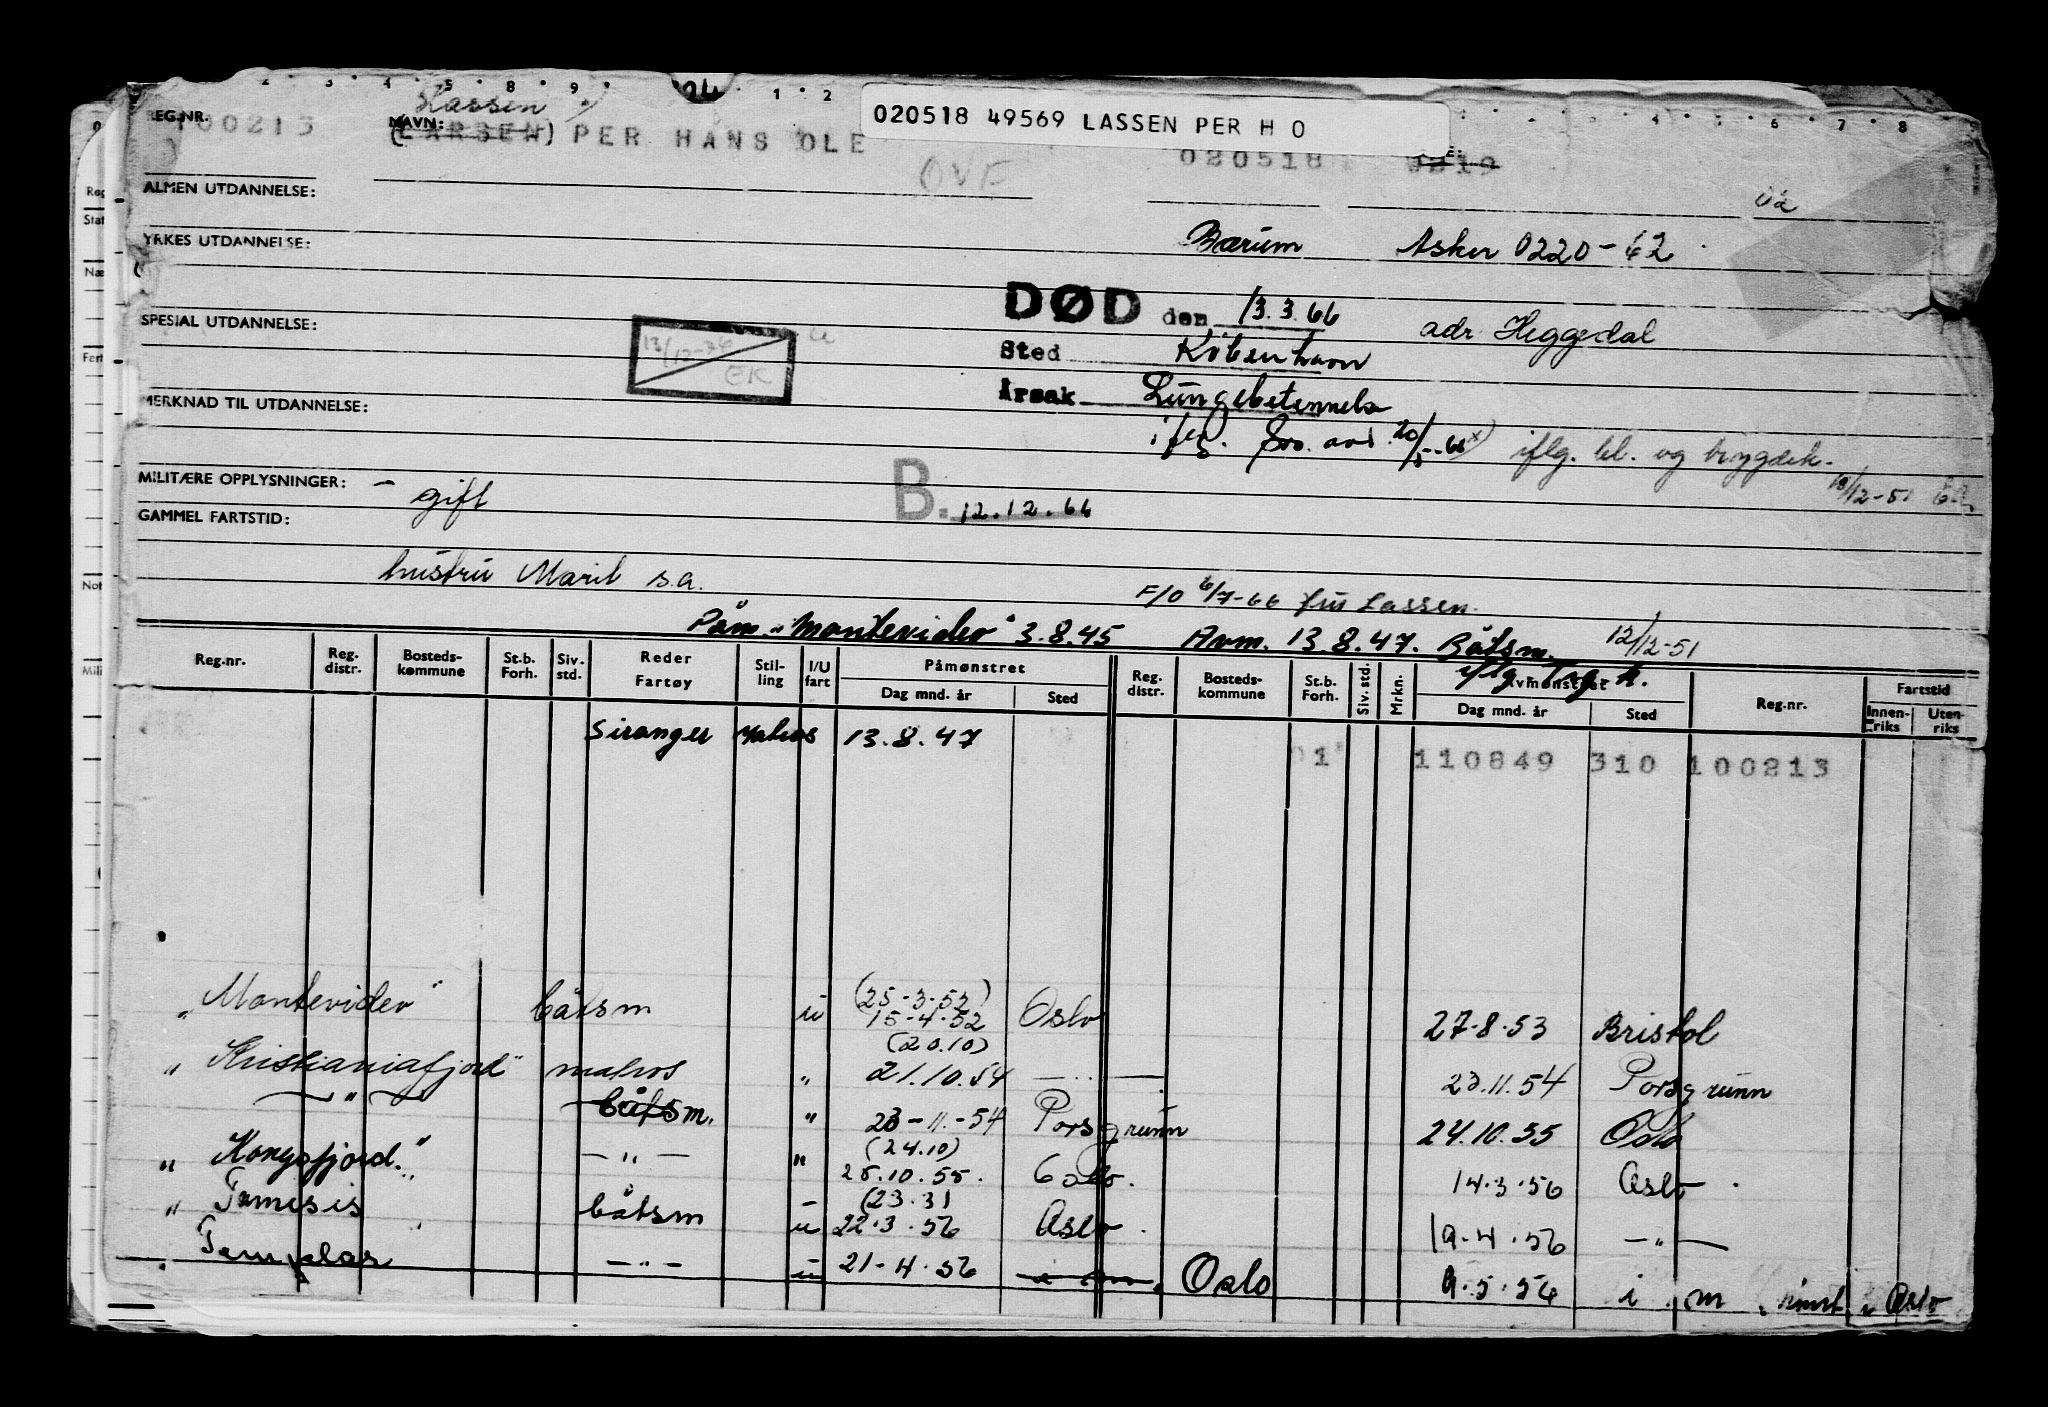 020518 49569 LASSEN PER H O
Lassen
REG.NR. 100213 NAVN: (LARSEN) PER HANS OLE 020518 0219
OVE
ALMEN UTDANNELSE:
YRKES UTDANNELSE: Bærum Asker 0220-62
DØD den 13.3.66 adr Heggedal
SPESIAL UTDANNELSE: 13/12-76 EK
Sted København
Årsak Lungebetennelse
MERKNAD TIL UTDANNELSE:
iflg. iflg. bl. og
MILITÆRE OPPLYSNINGER: - gift 18/12-51
GAMMEL FARTSTID: B. 12.12.66
hustru Marit s.a.
F/O 6/7-66 fru Lassen.
Påm. "Montevideo" 3.8.45 Avm. 13.8.47. Båtsm. 12/12-51
iflg.
Reg.nr. Reg. distr. Bosteds-kommune St.b. Forh. Siv. std. Reder Fartøy Stil-ling I/U fart Påmønstret Dag mnd. år Sted Reg. distr. Bosteds-kommune St.b. Forh. Siv. std. Mrkn. Avmønstret Dag mnd. år Sted Reg.nr. Fartstid Innen-riks Uten-riks
Siranger Matros 13.8.47
1 110849 310 100213
"Montevideo" båtsm u (25-3-52) 15-4-52 Oslo 27-8-53 Bristol
"Kristianiafjord" matros " (20.10) 21.10.54 — " — 23.11.54 Porsgrunn
— " — båtsm. " 23-11-54 Porsgrunn 24.10.55 Oslo
"Kongsfjord." — " — " (24.10) 25.10.55. Oslo. 14.3.56 Oslo.
" Tamesis båtsm u (23.3) 22.3.56 Oslo. 19.4.56 — " —
Templar — " — u 21-4-56 Oslo 9.5.56 i m Oslo